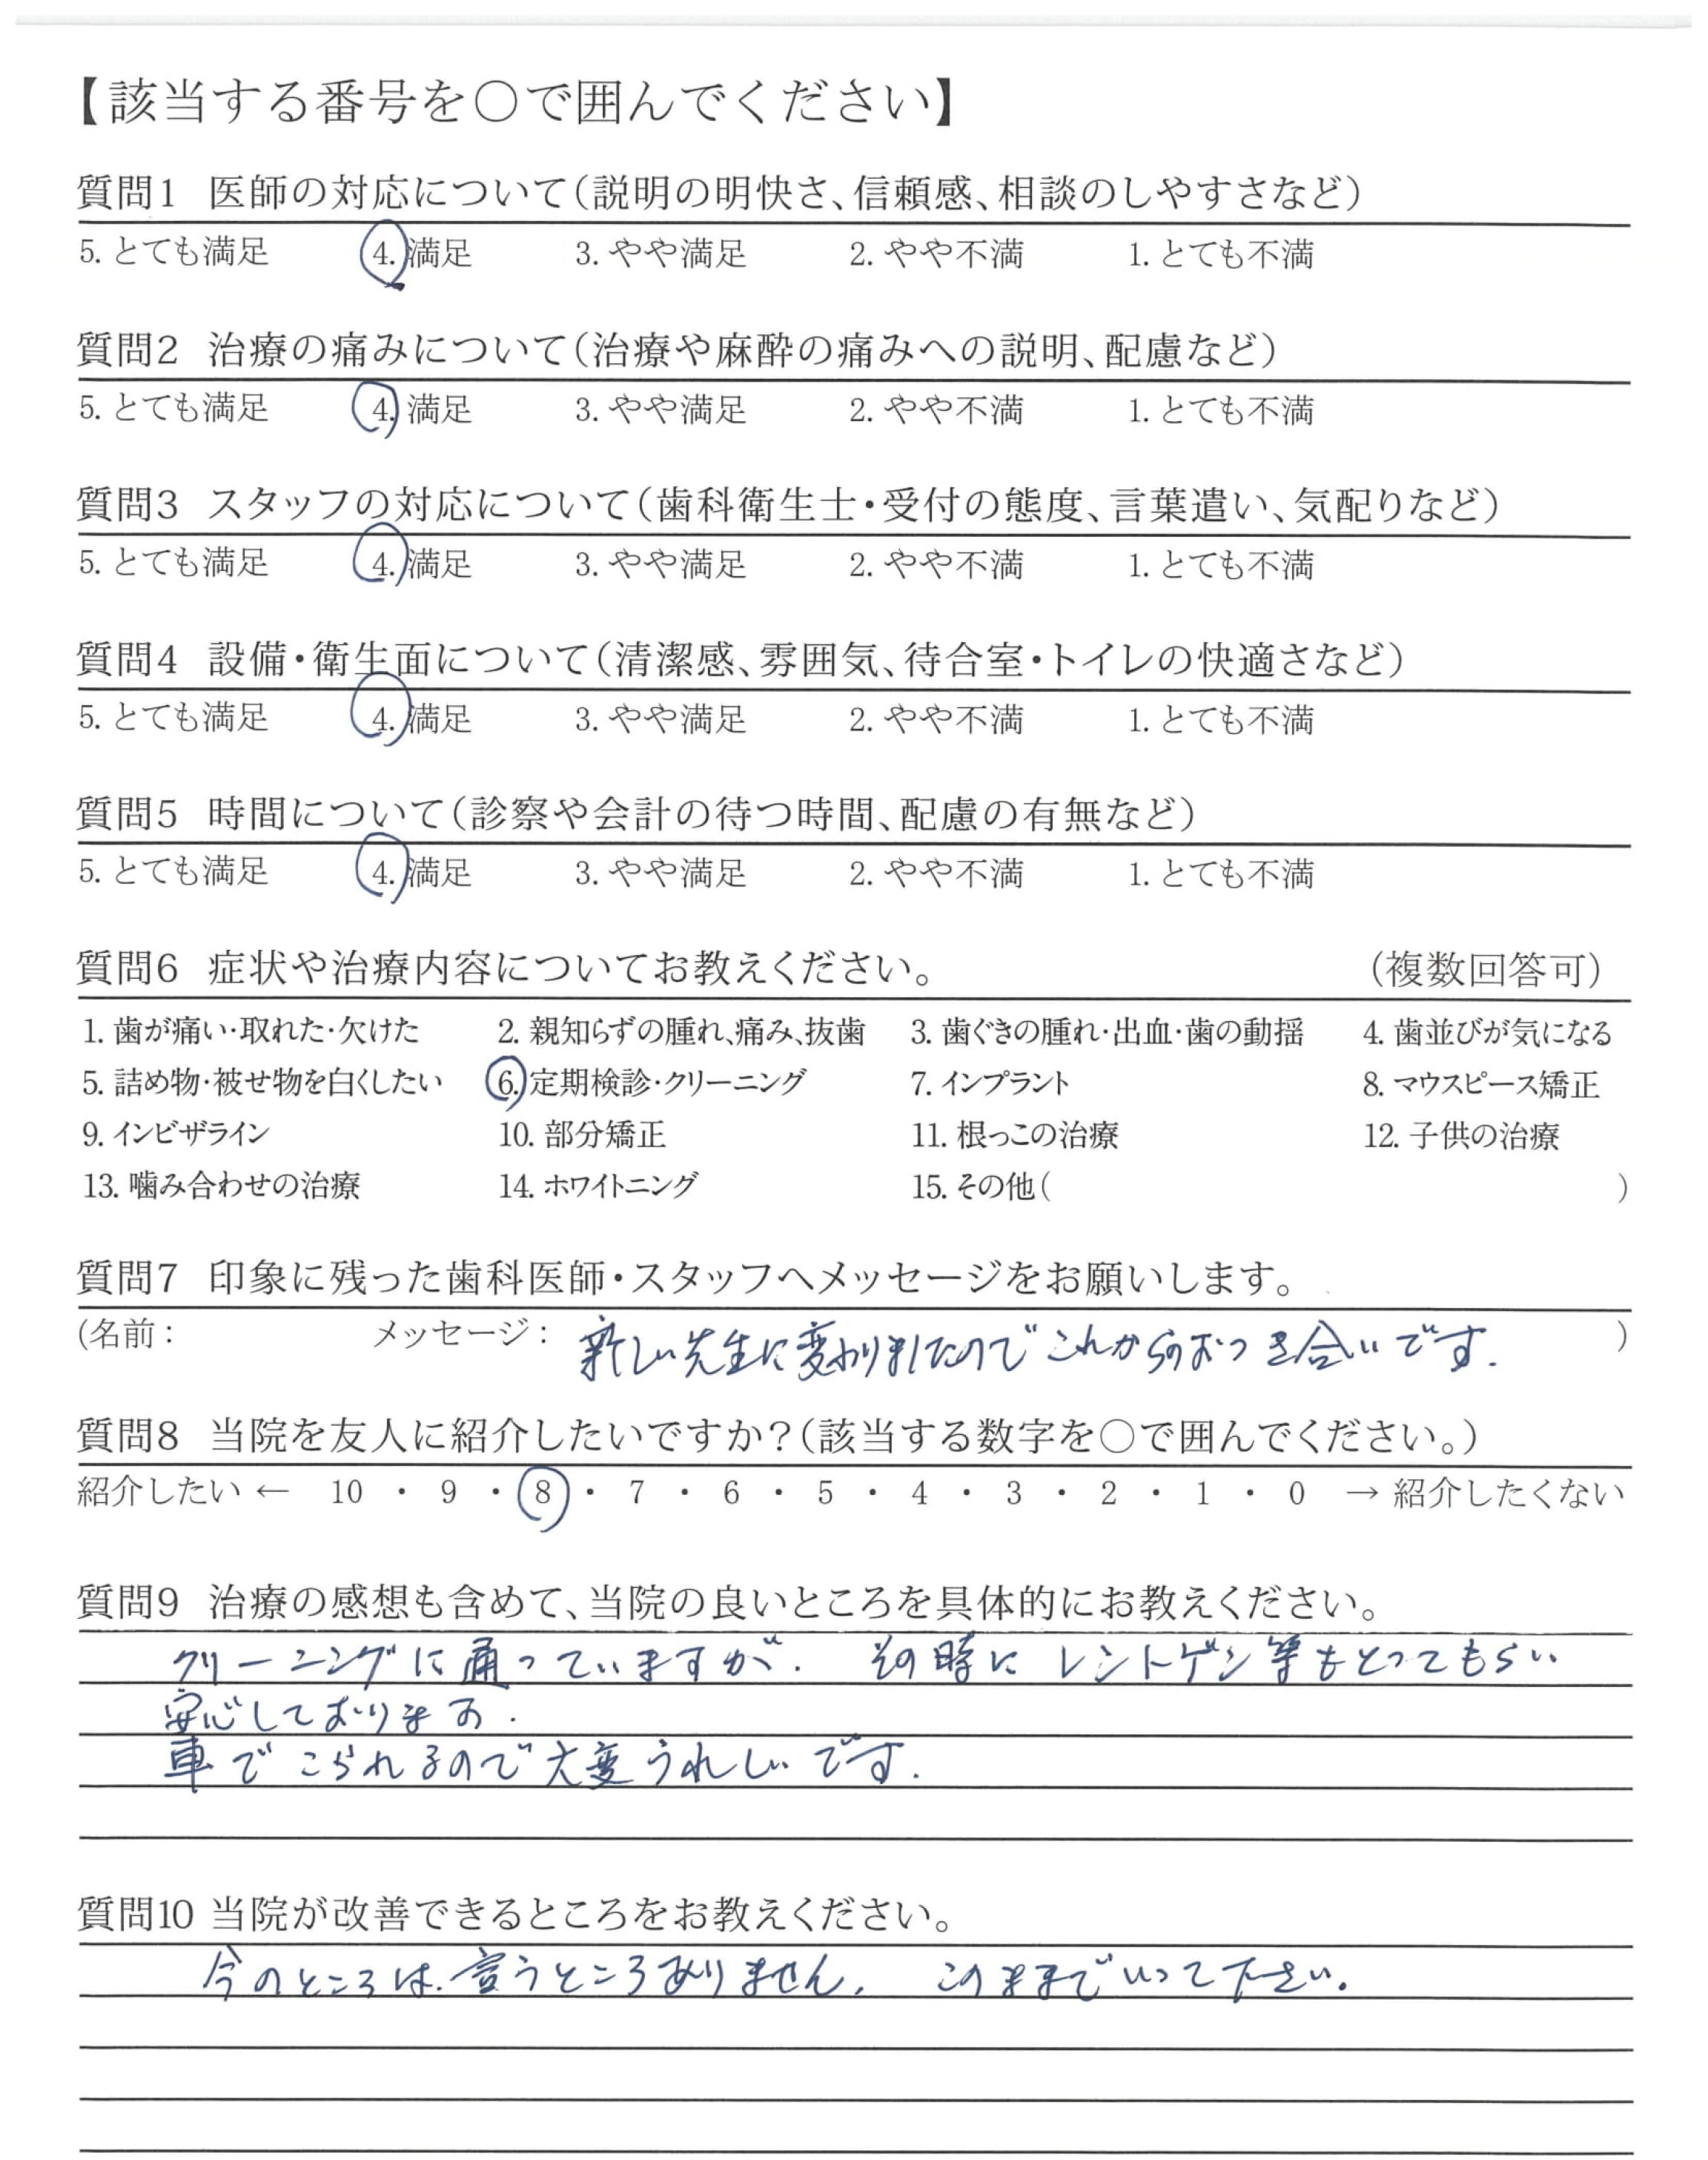 【該当する番号を○で囲んでください】
質問1 医師の対応について(説明の明快さ、信頼感、相談のしやすさなど)
5. とても満足 4. 満足 3. やや満足 2. やや不満 1. とても不満
質問2 治療の痛みについて(治療や麻酔の痛みへの説明、配慮など)
5. とても満足 4. 満足 3. やや満足 2. やや不満 1. とても不満
質問3 スタッフの対応について(歯科衛生士・受付の態度、言葉遣い、気配りなど)
5. とても満足 4. 満足 3. やや満足 2. やや不満 1. とても不満
質問4 設備・衛生面について(清潔感、雰囲気、待合室・トイレの快適さなど)
5. とても満足 4. 満足 3. やや満足 2. やや不満 1. とても不満
質問5 時間について(診察や会計の待つ時間、配慮の有無など)
5. とても満足 4. 満足 3. やや満足 2. やや不満 1. とても不満
質問6 症状や治療内容についてお教えください。 (複数回答可)
1. 歯が痛い・取れた・欠けた 2. 親知らずの腫れ、痛み、抜歯 3. 歯ぐきの腫れ・出血・歯の動揺 4. 歯並びが気になる
5. 詰め物・被せ物を白くしたい 6. 定期検診・クリーニング 7. インプラント 8. マウスピース矯正
9. インビザライン 10. 部分矯正 11. 根っこの治療 12. 子供の治療
13. 噛み合わせの治療 14. ホワイトニング 15. その他( )
質問7 印象に残った歯科医師・スタッフへメッセージをお願いします。
(名前: メッセージ: 新しい先生に変わりましたのでこれからのおつき合いです. )
質問8 当院を友人に紹介したいですか?(該当する数字を○で囲んでください。)
紹介したい ← 10 ・ 9 ・ 8 ・ 7 ・ 6 ・ 5 ・ 4 ・ 3 ・ 2 ・ 1 ・ 0 → 紹介したくない
質問9 治療の感想も含めて、当院の良いところを具体的にお教えください。
クリーニングに通っていますが. その時に レントゲン等もとってもらい
安心しております.
車でこられるので大変うれしいです.
質問10 当院が改善できるところをお教えください。
今のところは. 言うところありません. このままでいって下さい.